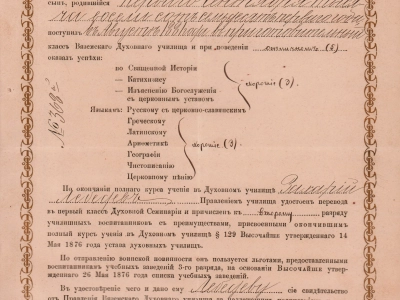 сынъ, родившійся
поступилъ въ Августѣ
классъ Вяземскаго Духовнаго училища и при поведеніи отличномъ (5)
оказалъ успѣхи:
по Священной Исторіи
— Катихизису
— Изъясненію Богослуженія
съ церковнымъ уставомъ
хорошіе (3)
Языкамъ: Русскому съ церковно-славянскимъ
Греческому
Латинскому
Ариѳметикѣ
Географіи
Чистописанію
Церковному пѣнію
хорошіе (3)
№ 368
По окончаніи полнаго курса ученія въ Духовномъ училищѣ Захарій
Лебедевъ Правленіемъ училища удостоенъ перевода
въ первый классъ Духовной Семинаріи и причисленъ къ второму разряду
училищныхъ воспитанниковъ съ преимуществами, присвоенными окончившимъ
полный курсъ ученія въ Духовномъ училищѣ § 129 Высочайше утвержденнаго 14
Мая 1876 года устава духовныхъ училищъ.
По отправленію воинской повинности онъ пользуется льготами, предоставленными
воспитанникамъ учебныхъ заведеній 3-го разряда, на основаніи Высочайше утвержденнаго
26 Мая 1876 года списка учебныхъ заведеній.
Въ удостовѣреніе чего и дано ему Лебедеву сіе свидѣтельство
отъ Правленія Вяземскаго Духовнаго училища